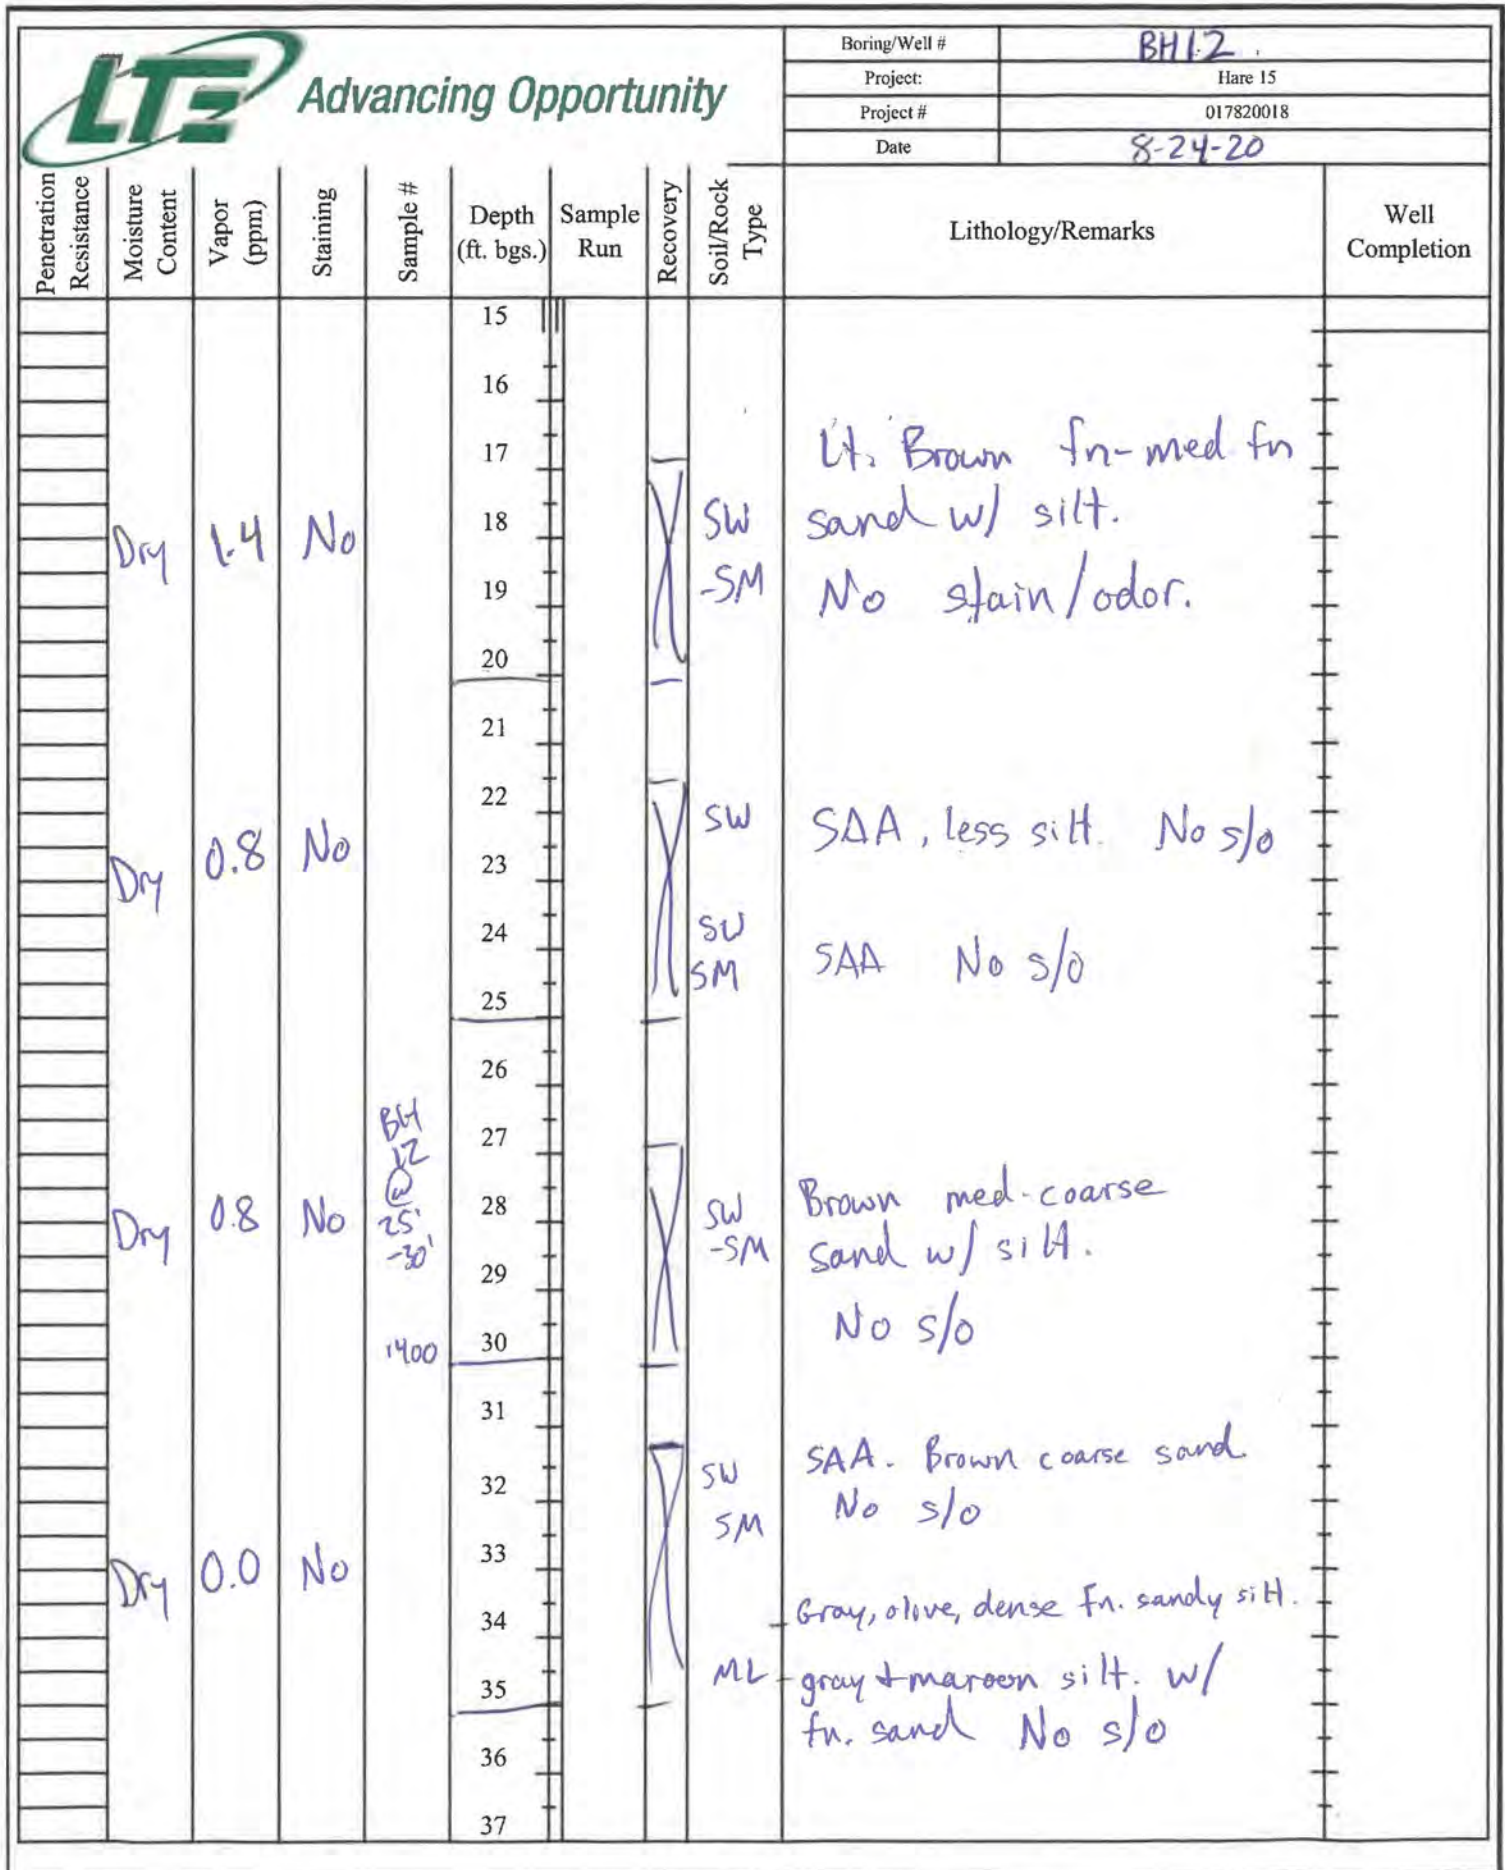 LTE Advancing Opportunity
Boring/Well # BH12
Project: Hare 15
Project # 017820018
Date 8-24-20
Penetration Resistance
Moisture Content
Vapor (ppm)
Staining
Sample #
Depth (ft. bgs.)
Sample Run
Recovery
Soil/Rock Type
Lithology/Remarks
Well Completion
15
16
17
Lt. Brown fn-med fn
18
Dry 1.4 No
SW
sand w/ silt.
19
-SM
No stain/odor.
20
21
22
SW
SAA, less silt. No s/o
Dry 0.8 No
23
24
SW
SM
SAA No s/o
25
26
BH
12
@
25'
-30'
27
28
Dry 0.8 No
SW
-SM
Brown med-coarse
sand w/ silt.
29
No s/o
1400
30
31
32
SW
SM
SAA. Brown coarse sand
No s/o
33
Dry 0.0 No
34
- Gray, olove, dense fn. sandy silt.
35
ML - gray + maroon silt. w/
fn. sand No s/o
36
37